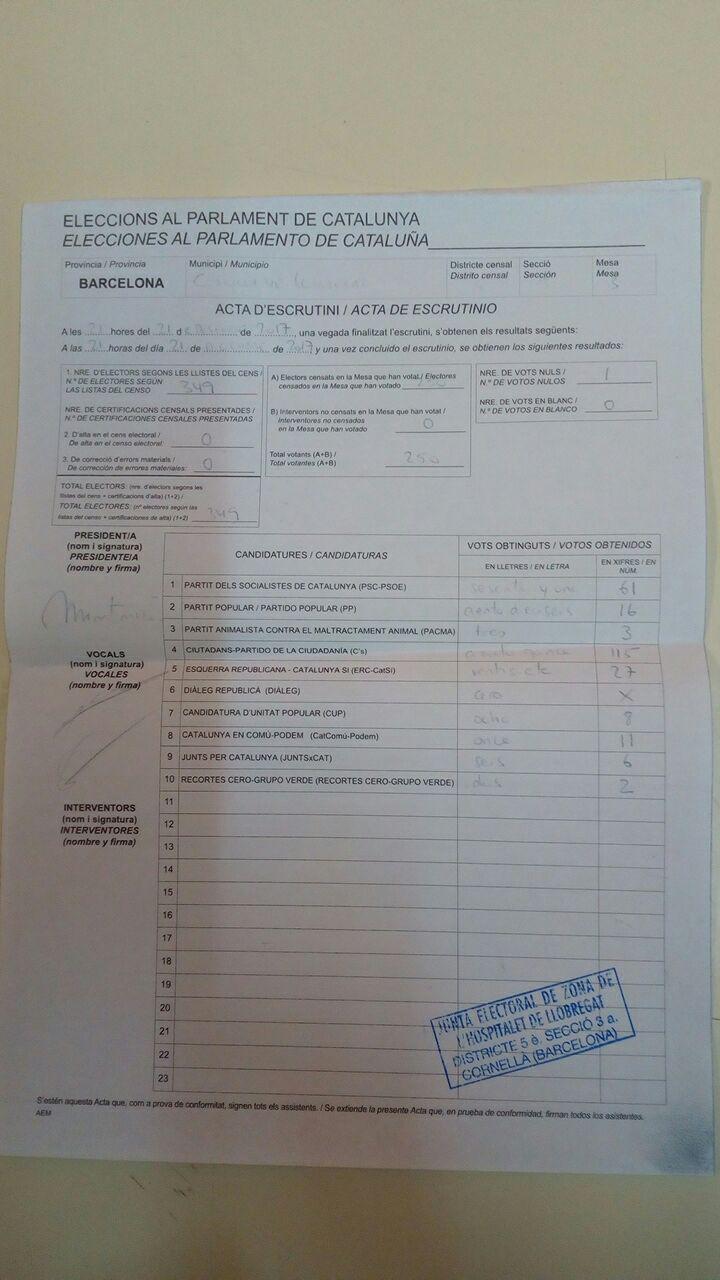 ELECCIONS AL PARLAMENT DE CATALUNYA
ELECCIONES AL PARLAMENTO DE CATALUÑA
Provincia / Provincia
Municipi / Municipio
Districte censal
Distrito censal
Secció
Sección
Mesa
Mesa
BARCELONA
ACTA D'ESCRUTINI / ACTA DE ESCRUTINIO
A les 21 hores del 21 d de 2017, una vegada finalitzat l'escrutini, s'obtenen els resultats següents:
A las 21 horas del día 21 de de 2017 y una vez concluido el escrutinio, se obtienen los siguientes resultados:
1. NRE. D'ELECTORS SEGONS LES LLISTES DEL CENS /
N.º DE ELECTORES SEGÚN
LAS LISTAS DEL CENSO 349
NRE. DE CERTIFICACIONS CENSALS PRESENTADES /
N.º DE CERTIFICACIONES CENSALES PRESENTADAS
2. D'alta en el cens electoral /
De alta en el censo electoral: 0
3. De correcció d'errors materials /
De corrección de errores materiales: 0
TOTAL ELECTORS: (nre. d'electors segons les
llistes del cens + certificacions d'alta) (1+2) /
TOTAL ELECTORES: (nº electores según las
listas del censo + certificaciones de alta) (1+2) 349
A) Electors censats en la Mesa que han votat / Electores
censados en la Mesa que han votado
B) Interventors no censats en la Mesa que han votat /
Interventores no censados
en la Mesa que han votado 0
Total votants (A+B) /
Total votantes (A+B) 250
NRE. DE VOTS NULS /
N.º DE VOTOS NULOS 1
NRE. DE VOTS EN BLANC /
N.º DE VOTOS EN BLANCO 0
PRESIDENT/A
(nom i signatura)
PRESIDENTE/A
(nombre y firma)
VOCALS
(nom i signatura)
VOCALES
(nombre y firma)
INTERVENTORS
(nom i signatura)
INTERVENTORES
(nombre y firma)
CANDIDATURES / CANDIDATURAS
VOTS OBTINGUTS / VOTOS OBTENIDOS
EN LLETRES / EN LETRA
EN XIFRES / EN NUM.
1 PARTIT DELS SOCIALISTES DE CATALUNYA (PSC-PSOE) sesenta y uno 61
2 PARTIT POPULAR / PARTIDO POPULAR (PP) 16
3 PARTIT ANIMALISTA CONTRA EL MALTRACTAMENT ANIMAL (PACMA) tres 3
4 CIUTADANS-PARTIDO DE LA CIUDADANÍA (C's) 115
5 ESQUERRA REPUBLICANA - CATALUNYA SI (ERC-CatSí) 27
6 DIÀLEG REPUBLICÀ (DIÀLEG) cero X
7 CANDIDATURA D'UNITAT POPULAR (CUP) ocho 8
8 CATALUNYA EN COMÚ-PODEM (CatComú-Podem) once 11
9 JUNTS PER CATALUNYA (JUNTSxCAT) seis 6
10 RECORTES CERO-GRUPO VERDE (RECORTES CERO-GRUPO VERDE) dos 2
11
12
13
14
15
16
17
18
19
20
21
22
23
JUNTA ELECTORAL DE ZONA DE
L'HOSPITALET DE LLOBREGAT
DISTRICTE 5 è. SECCIÓ 3 a.
CORNELLA (BARCELONA)
S'estén aquesta Acta que, com a prova de conformitat, signen tots els assistents. / Se extiende la presente Acta que, en prueba de conformidad, firman todos los asistentes.
AEM